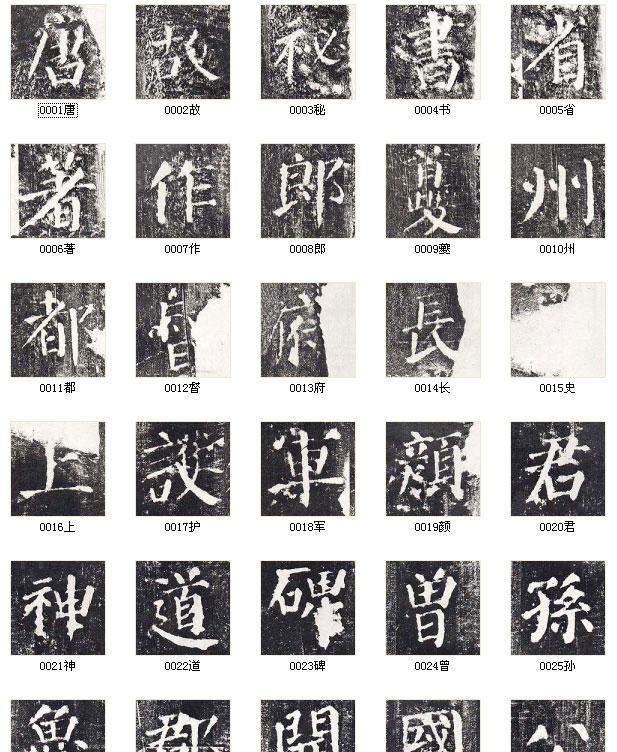 唐 故 秘 書 省
0001唐 0002故 0003秘 0004书 0005省
著 作 郎 夔 州
0006著 0007作 0008郎 0009夔 0010州
都 督 府 長
0011都 0012督 0013府 0014长 0015史
上 護 軍 顏 君
0016上 0017护 0018军 0019颜 0020君
神 道 碑 曾 孫
0021神 0022道 0023碑 0024曾 0025孙
魚 郡 開 國 八